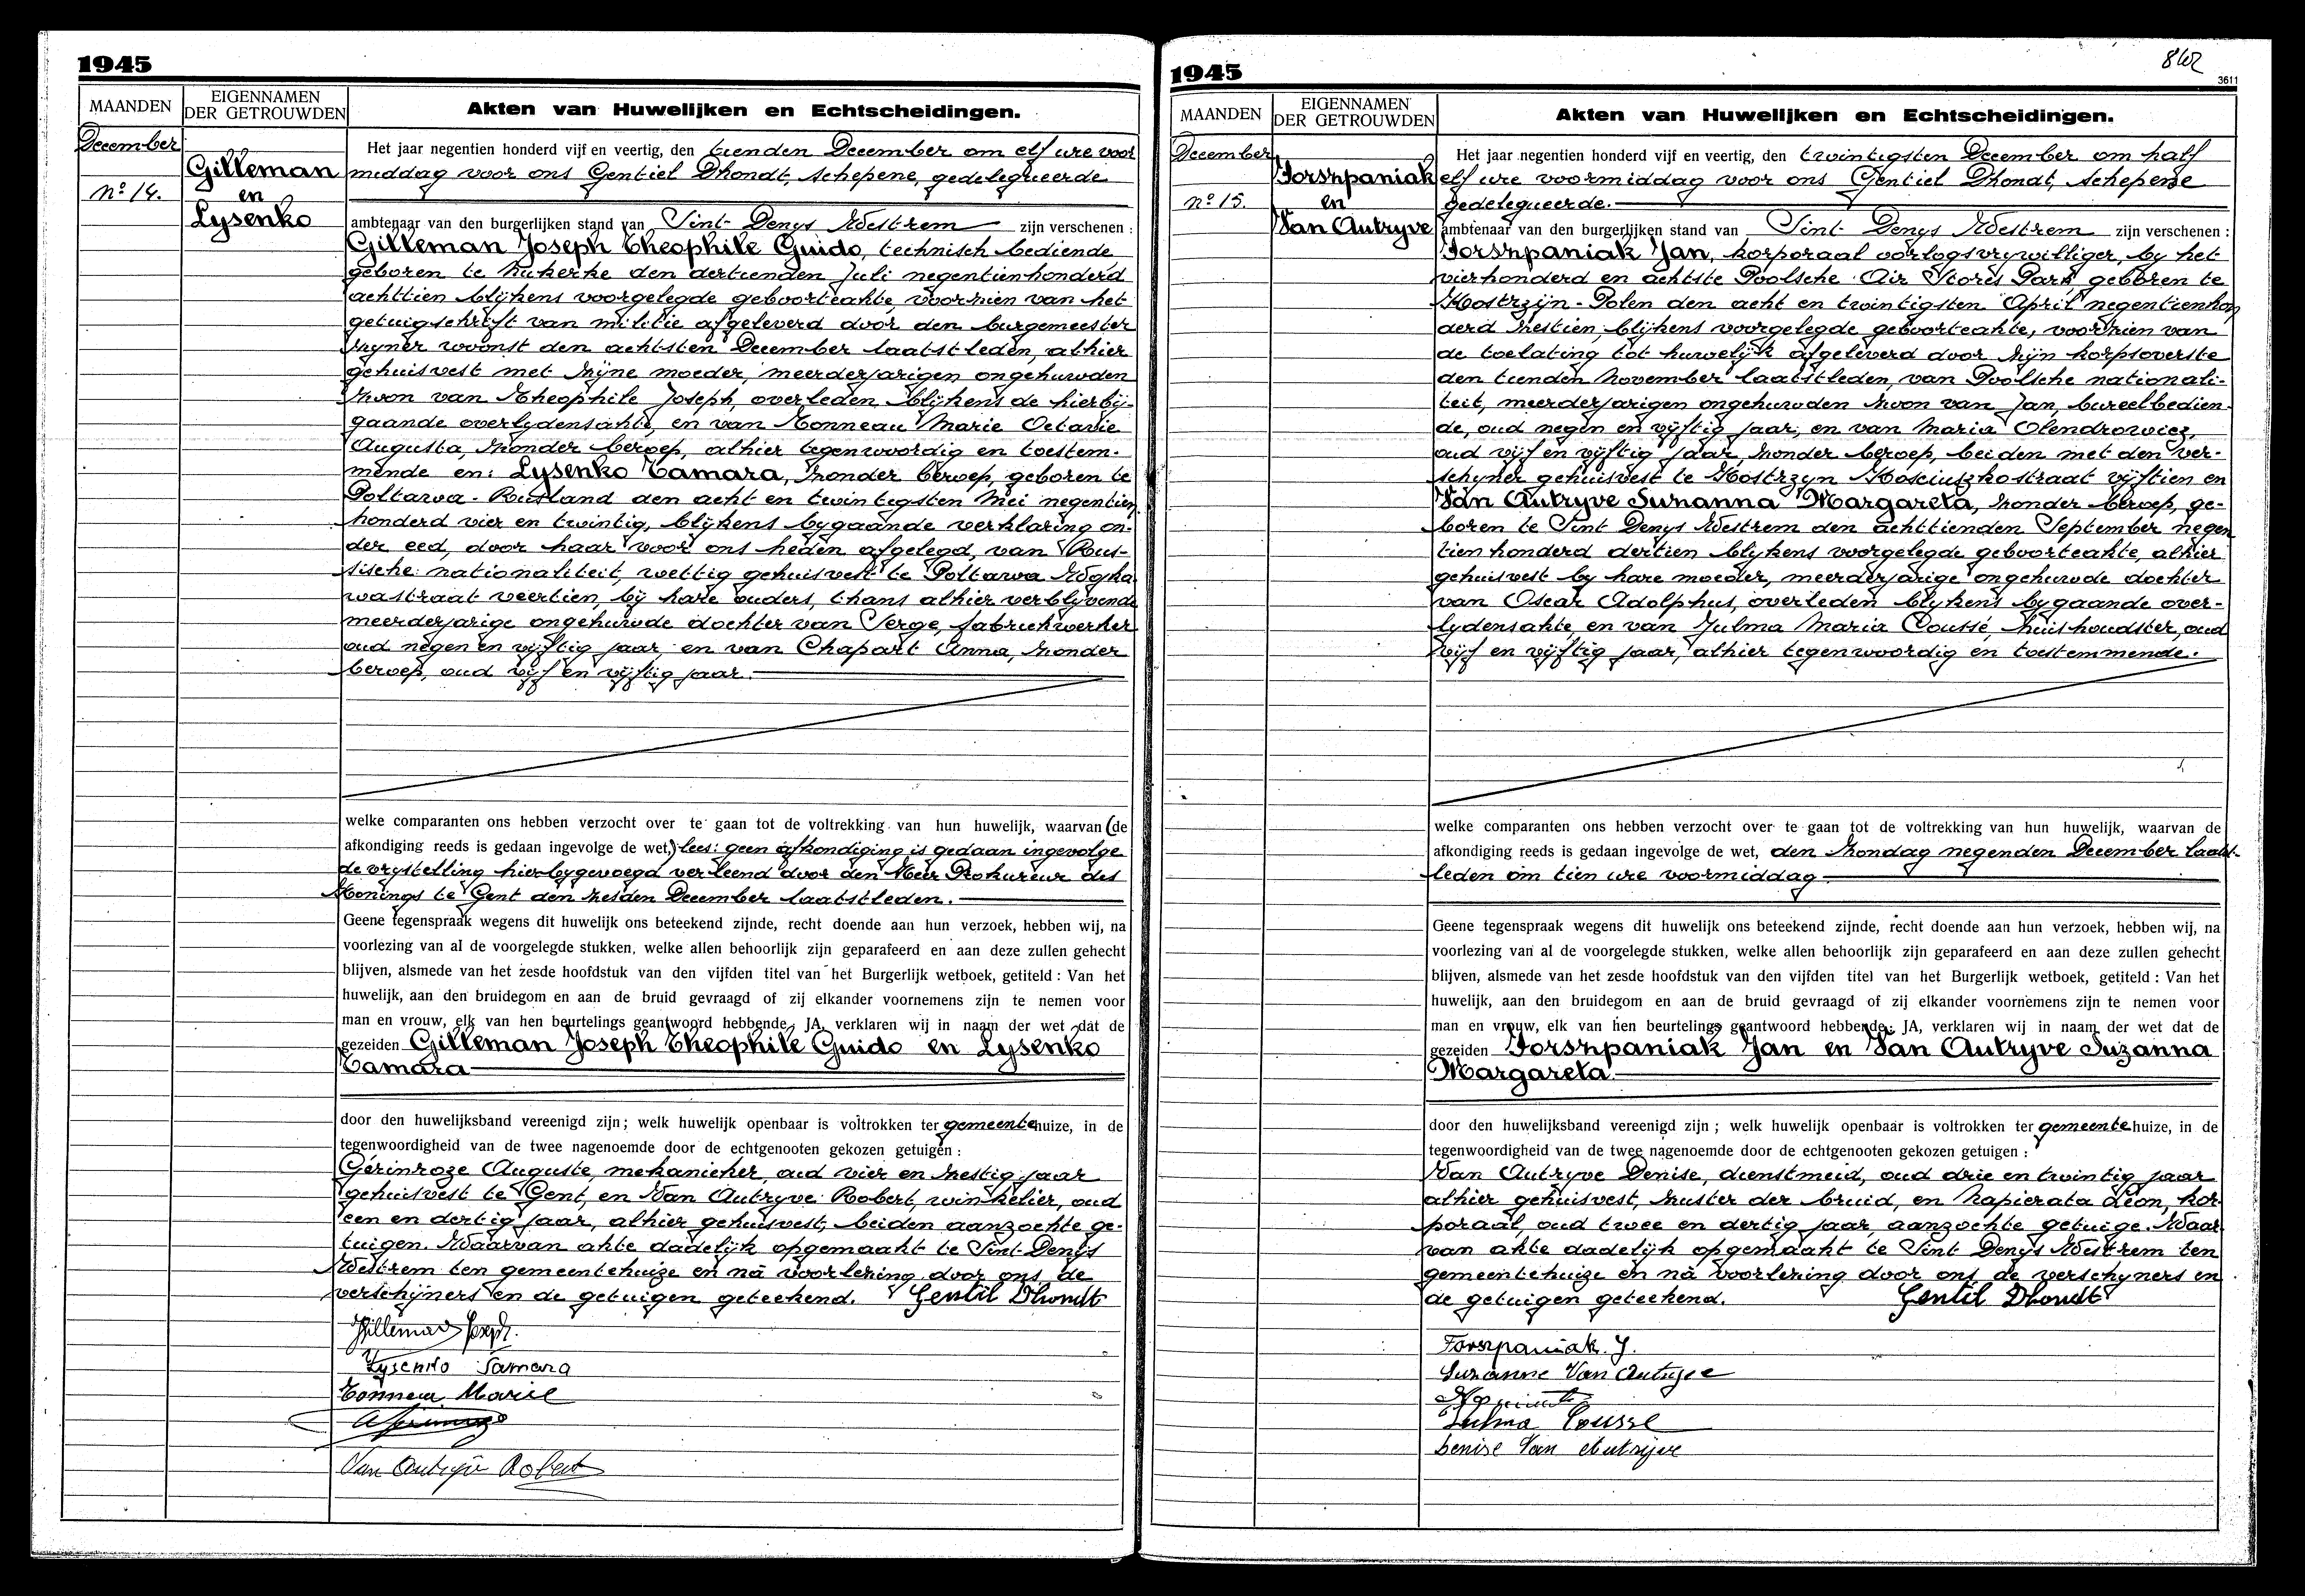 1945
MAANDEN
EIGENNAMEN
DER GETROUWDEN
Akten van Huwelijken en Echtscheidingen.
December
No 14.
Gilleman
en
Lysenko
Het jaar negentien honderd vijf en veertig, den tienden December om elf ure voor
middag voor ons Gentiel Dhondt, schepene, gedelegueerde
ambtenaar van den burgerlijken stand van Sint Denys Westrem zijn verschenen :
Gilleman Joseph Theophile Guido, technisch bediende
geboren te Nukerke den dertienden Juli negentienhonderd
achttien blijkens voorgelegde geboorteakte, voorzien van het
getuigschrift van militie afgeleverd door den burgemeester
zyner woonst den achtsten December laatstleden, alhier
gehuisvest met zijne moeder, meerderjarigen ongehuwden
zoon van Theophile Joseph, overleden blijkens de hierbij-
gaande overlydensakte, en van Tonneau Marie Octavie
Augusta, zonder beroep, alhier tegenwoordig en toestem-
mende en: Lysenko Tamara, zonder beroep, geboren te
Poltawa - Rusland den acht en twintigsten Mei negentien
honderd vier en twintig, blijkens bygaande verklaring on-
der eed, door haar voor ons heden afgelegd, van Rus-
sische nationaliteit, wettig gehuisvest te Poltawa
wastraat veertien, bij hare ouders, thans alhier verblyvende
meerderjarige ongehuwde dochter van Serge, fabriekwerker
oud negen en vijftig jaar, en van Chapart Anna, zonder
beroep, oud vijf en vijftig jaar.
welke comparanten ons hebben verzocht over te gaan tot de voltrekking van hun huwelijk, waarvan (de
afkondiging reeds is gedaan ingevolge de wet,) lees: geen afkondiging is gedaan ingevolge
de vrystelling hierbygevoegd verleend door den Heer Prokureur des
Konings te Gent den zesden December laatstleden.
Geene tegenspraak wegens dit huwelijk ons beteekend zijnde, recht doende aan hun verzoek, hebben wij, na
voorlezing van al de voorgelegde stukken, welke allen behoorlijk zijn geparafeerd en aan deze zullen gehecht
blijven, alsmede van het zesde hoofdstuk van den vijfden titel van het Burgerlijk wetboek, getiteld : Van het
huwelijk, aan den bruidegom en aan de bruid gevraagd of zij elkander voornemens zijn te nemen voor
man en vrouw, elk van hen beurtelings geantwoord hebbende, JA, verklaren wij in naam der wet dat de
gezeiden Gilleman Joseph Theophile Guido en Lysenko
Tamara
door den huwelijksband vereenigd zijn ; welk huwelijk openbaar is voltrokken ter gemeentehuize, in de
tegenwoordigheid van de twee nagenoemde door de echtgenooten gekozen getuigen :
Gérinroze Auguste, mekanieker, oud vier en zestig jaar
gehuisvest te Gent, en Van Autryve Robert, winkelier, oud
een en dertig jaar, alhier gehuisvest, beiden aanzochte ge-
tuigen. Waarvan akte dadelijk opgemaakt te Sint-Denys
Westrem ten gemeentehuize en nà voorlezing door ons, de
verschijners en de getuigen geteekend. Gentil Dhondt
Gilleman Joseph.
Lysenko Tamara
Tonneau Marie
Van Autryve Robert
1945
862
3611
MAANDEN
EIGENNAMEN
DER GETROUWDEN
Akten van Huwelijken en Echtscheidingen.
December
No 15.
Forszpaniak
en
Van Autryve
Het jaar negentien honderd vijf en veertig, den twintigsten December om half
elf ure voormiddag voor ons Gentiel Dhondt, schepene
gedelegueerde.
ambtenaar van den burgerlijken stand van Sint Denys Westrem zijn verschenen :
Forszpaniak Jan, korporaal oorlogsvrywilliger, by het
vierhonderd en achtste Poolsche Air Stores Park geboren te
Kostrzijn - Polen den acht en twintigsten April negentienhon
derd zestien, blijkens voorgelegde geboorteakte, voorzien van
de toelating tot huwelijk afgeleverd door zijn korpsoverste
den tienden November laatstleden, van Poolsche nationali-
teit, meerderjarigen ongehuwden zoon van Jan, bureelbedien-
de, oud negen en vijftig jaar, en van Maria Olendrowicz,
oud vijf en vijftig jaar, zonder beroep, beiden met den ver-
schyner gehuisvest te Kostrzyn Kosciuszkostraat vijftien en
Van Autryve Suzanna Margareta, zonder beroep, ge-
boren te Sint Denys Westrem den achttienden September negen
tien honderd dertien blijkens voorgelegde geboorteakte, alhier
gehuisvest by hare moeder, meerderjarige ongehuwde dochter
van Oscar Adolphus, overleden blykens bygaande over-
lydensakte, en van Julma Maria Coussé, huishoudster, oud
vijf en vijftig jaar, alhier tegenwoordig en toestemmende.
welke comparanten ons hebben verzocht over te gaan tot de voltrekking van hun huwelijk, waarvan de
afkondiging reeds is gedaan ingevolge de wet, den Zondag negenden December laatst-
leden om tien ure voormiddag
Geene tegenspraak wegens dit huwelijk ons beteekend zijnde, recht doende aan hun verzoek, hebben wij, na
voorlezing van al de voorgelegde stukken, welke allen behoorlijk zijn geparafeerd en aan deze zullen gehecht
blijven, alsmede van het zesde hoofdstuk van den vijfden titel van het Burgerlijk wetboek, getiteld : Van het
huwelijk, aan den bruidegom en aan de bruid gevraagd of zij elkander voornemens zijn te nemen voor
man en vrouw, elk van hen beurtelings geantwoord hebbende: JA, verklaren wij in naam der wet dat de
gezeiden Forszpaniak Jan en Van Autryve Suzanna
Margareta.
door den huwelijksband vereenigd zijn ; welk huwelijk openbaar is voltrokken ter gemeentehuize, in de
tegenwoordigheid van de twee nagenoemde door de echtgenooten gekozen getuigen :
Van Autryve Denise, dienstmeid, oud drie en twintig jaar
alhier gehuisvest, zuster der bruid, en Napierata Léon, kor-
poraal, oud twee en dertig jaar, aanzochte getuige. Waar
van akte dadelijk opgemaakt te Sint Denys Westrem ten
gemeentehuize en nà voorlezing door ons, de verschyners en
de getuigen geteekend. Gentil Dhondt
Forszpaniak J.
Suzanne Van Autryve
Julma Cousse
Denise Van Autryve